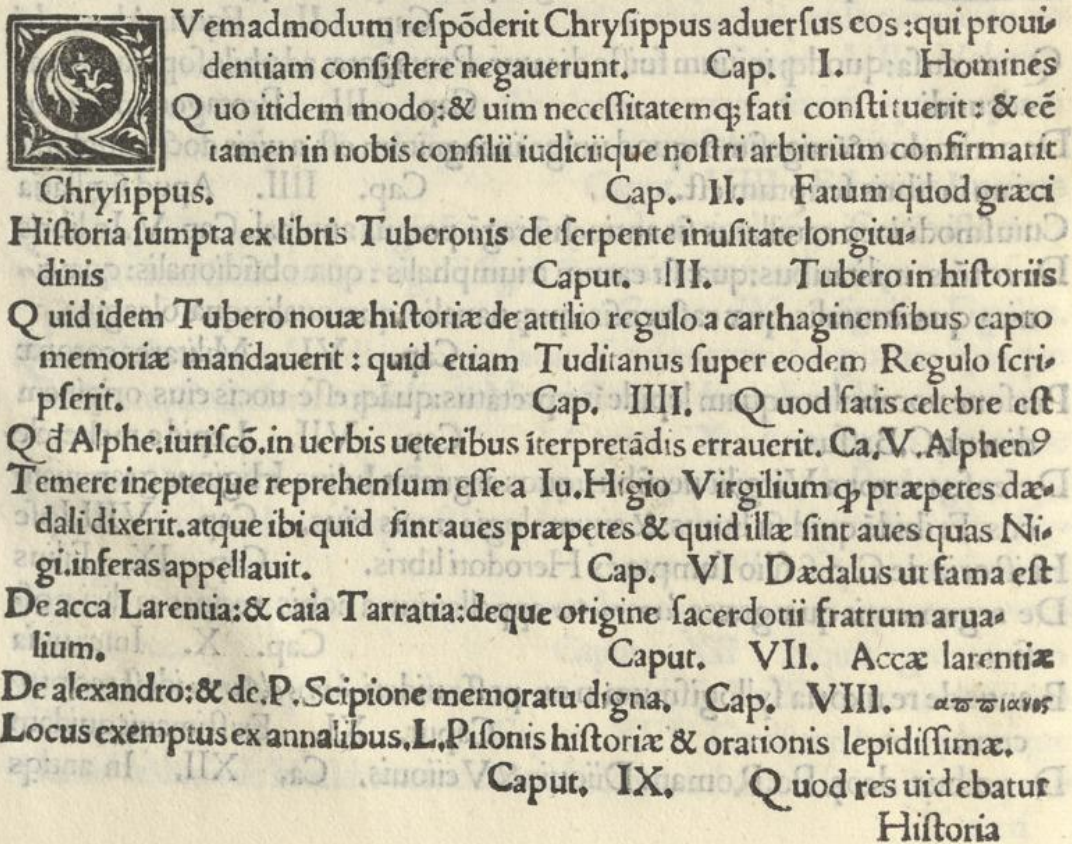 QVemadmodum reſpõderit Chryſippus aduerſus eos :qui proui-
dentiam conſiſtere negauerunt. Cap. I. Homines
Quo itidem modo:& uim neceſſitatemq; fati conſtituerit : & eẽ
tamen in nobis conſilii iudiciique noſtri arbitrium confirmarit
Chryſippus. Cap. II. Fatum quod græci
Hiſtoria ſumpta ex libris Tuberonis de ſerpente inuſitate longitu-
dinis Caput. III. Tubero in hiſtoriis
Quid idem Tubero nouæ hiſtoriæ de attilio regulo a carthaginenſibus capto
memoriæ mandauerit : quid etiam Tuditanus ſuper eodem Regulo ſcri-
pſerit. Cap. IIII. Quod ſatis celebre eſt
Qd Alphe.iuriſcõ.in uerbis ueteribus ĩterpretãdis errauerit. Ca. V. Alphenꝰ
Temere inepteque reprehenſum eſſe a Iu.Higio Virgilium ꝙ præpetes dæ-
dali dixerit.atque ibi quid ſint aues præpetes & quid illæ ſint aues quas Ni-
gi.inferas appellauit. Cap. VI Dædalus ut fama eſt
De acca Larentia:& caia Tarratia:deque origine ſacerdotii fratrum arua-
lium. Caput. VII. Accæ larentiæ
De alexandro:& de.P.Scipione memoratu digna. Cap. VIII. αϖϖιανος
Locus exemptus ex annalibus.L.Piſonis hiſtoriæ & orationis lepidiſſimæ.
Caput. IX. Quod res uidebatur
Hiſtoria